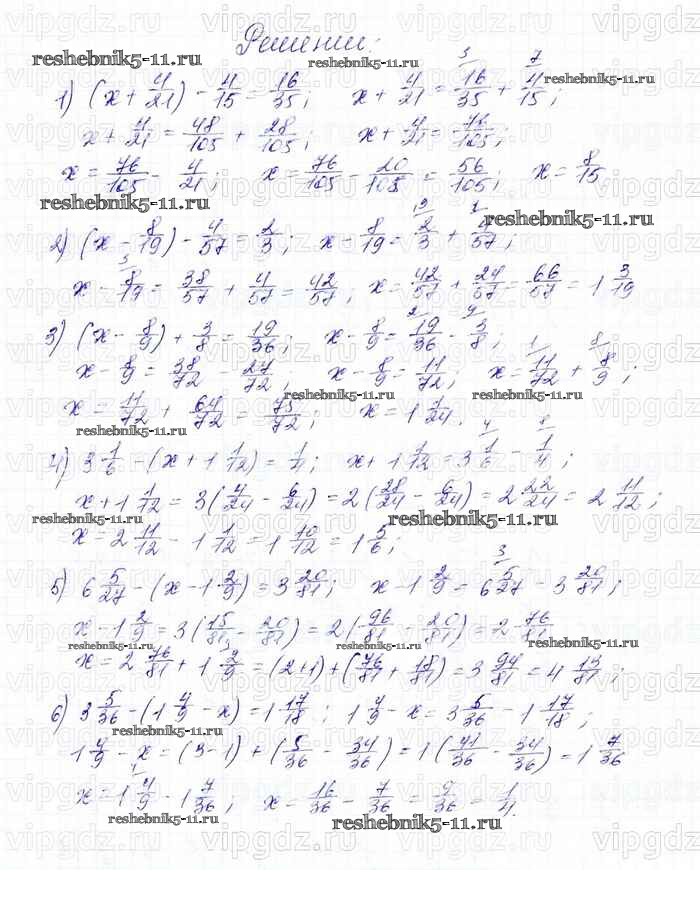 Решении:
1) (x + 4/21) - 4/15 = 16/35; x + 4/21 = 16/35 + 4/15;
x + 4/21 = 48/105 + 28/105; x + 4/21 = 76/105;
x = 76/105 - 4/21; x = 76/105 - 20/105 = 56/105; x = 8/15
2) (x - 8/19) - 4/57 = 2/3; x - 8/19 = 2/3 + 4/57;
x - 8/19 = 38/57 + 4/57 = 42/57; x = 42/57 + 24/57 = 66/57 = 1 3/19
3) (x - 8/9) + 3/8 = 19/36; x - 8/9 = 19/36 - 3/8;
x - 8/9 = 38/72 - 27/72; x - 8/9 = 11/72; x = 11/72 + 8/9;
x = 11/72 + 64/72 = 75/72; x = 1 1/24.
4) 3 1/6 - (x + 1 1/12) = 1/4; x + 1 1/12 = 3 1/6 - 1/4;
x + 1 1/12 = 3(4/24 - 6/24) = 2(28/24 - 6/24) = 2 22/24 = 2 11/12;
x = 2 11/12 - 1 1/12 = 1 10/12 = 1 5/6;
5) 6 5/27 - (x - 1 2/9) = 3 20/81; x - 1 2/9 = 6 5/27 - 3 20/81;
x - 1 2/9 = 3(15/81 - 20/81) = 2(96/81 - 20/81) = 2 76/81
x = 2 76/81 + 1 2/9 = (2+1) + (76/81 + 18/81) = 3 94/81 = 4 13/81;
6) 3 5/36 - (1 4/9 - x) = 1 17/18; 1 4/9 - x = 3 5/36 - 1 17/18;
1 4/9 - x = (3-1) + (5/36 - 34/36) = 1(41/36 - 34/36) = 1 7/36
x = 1 4/9 - 1 7/36; x = 16/36 - 7/36 = 9/36 = 1/4.
reshebnik5-11.ru
vipgdz.ru